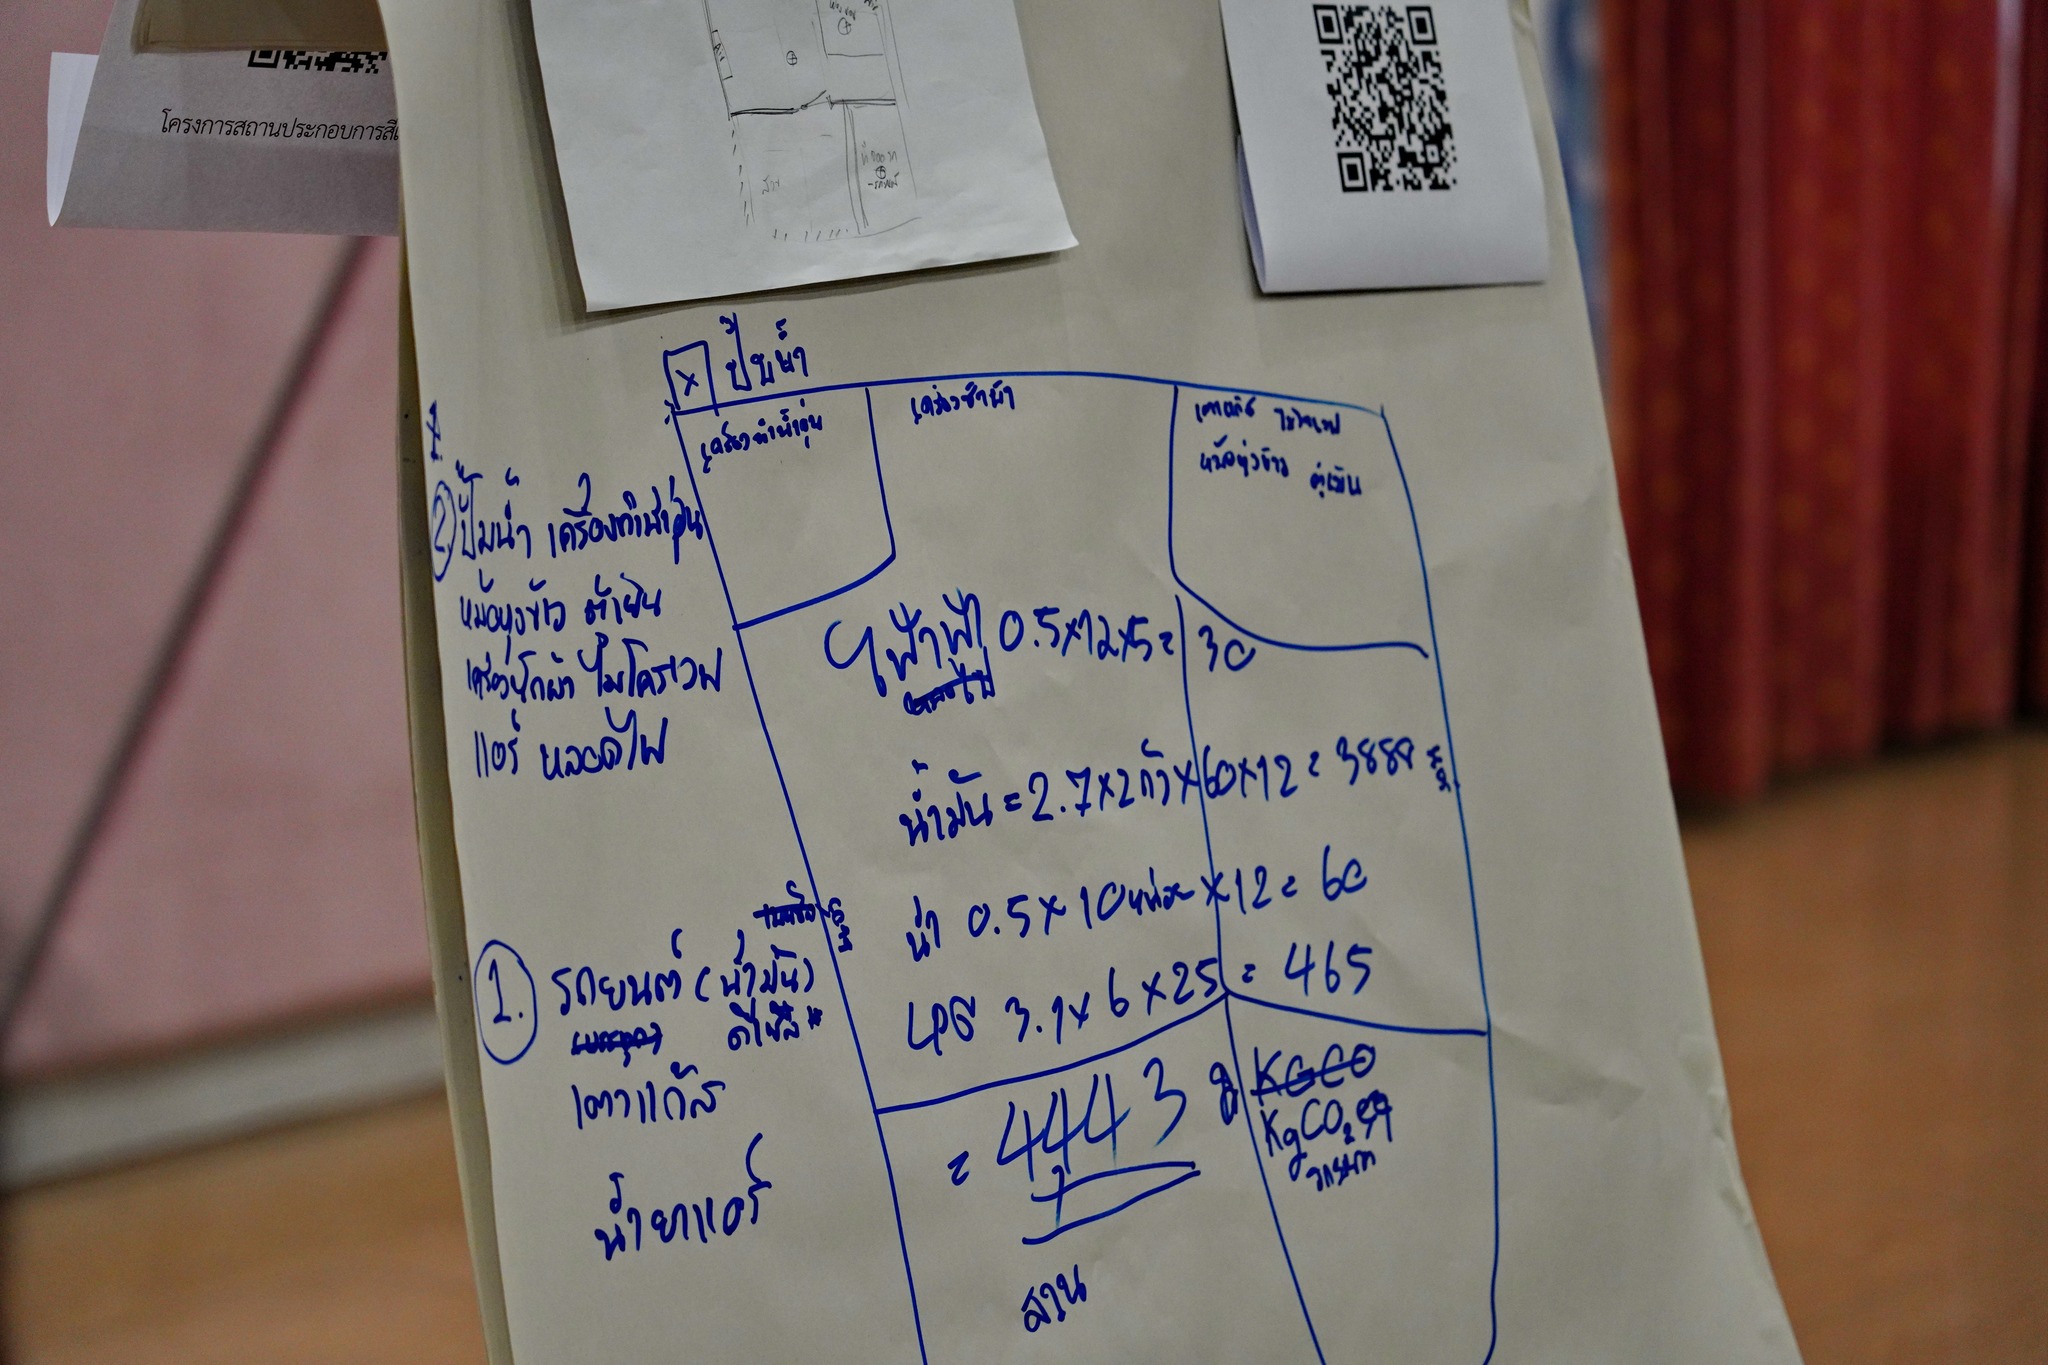 โครงการสถานประกอบการสีเ
สวน
X ปั๊บน้ำ
เครื่องทำน้ำอุ่น
เครื่องซักผ้า
เตาแก๊ส ไมโครเวฟ
หม้อหุงข้าว ตู้เย็น
2 ปั๊มน้ำ เครื่องทำน้ำอุ่น
หม้อหุงข้าว ตู้เย็น
เครื่องซักผ้า ไมโครเวฟ
แอร์ หลอดไฟ
ไฟฟ้า 0.5×12×5= 30
น้ำมัน = 2.7×2คัว×60×12= 3888
น้ำ 0.5×10หน่วย×12= 60
LPG 3.1×6×25= 465
= 4443
KGCO
KgCO₂
สวน
1. รถยนต์ (น้ำมัน)
ดีเซล*
เตาแก๊ส
น้ำยาแอร์